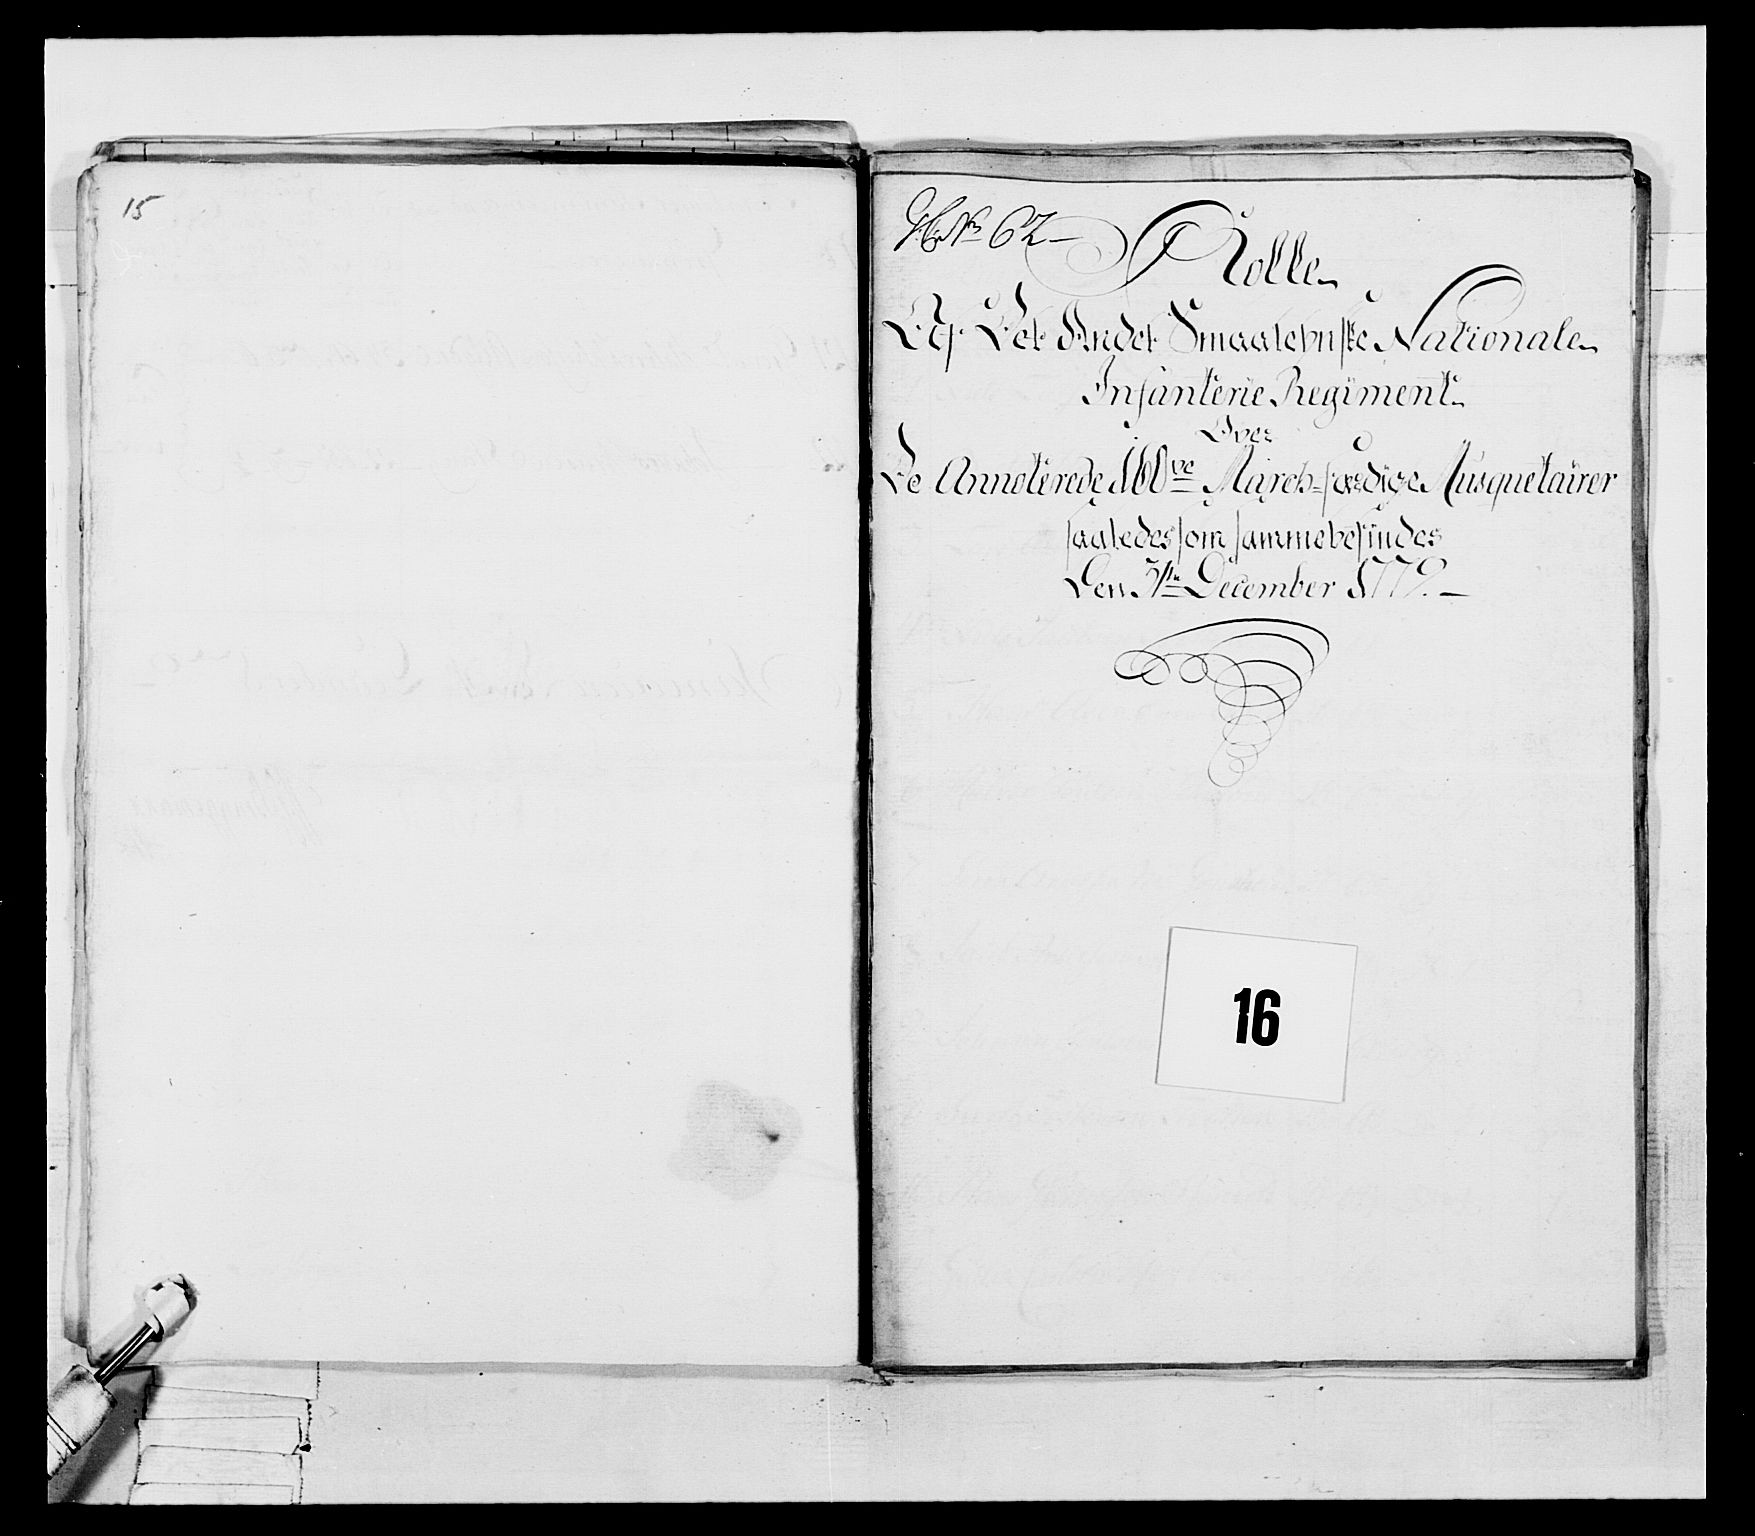 15
No 62
Rolle
Af Det Andet Smaalehnske Nationale
Infanterie Regiment
Over
De Annoterede 160ve March-færdige Musquetairer
saaledes som samme befindes
Den 31te December 1779.
16